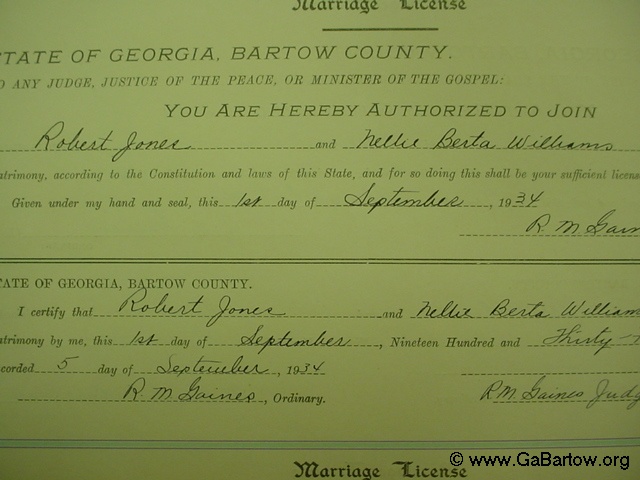 Marriage License
STATE OF GEORGIA, BARTOW COUNTY.
TO ANY JUDGE, JUSTICE OF THE PEACE, OR MINISTER OF THE GOSPEL:
YOU ARE HEREBY AUTHORIZED TO JOIN
Robert Jones and Nellie Berta Williams
atrimony, according to the Constitution and laws of this State, and for so doing this shall be your sufficient licens
Given under my hand and seal, this 1st day of September, 1934
R. M. Gain
TATE OF GEORGIA, BARTOW COUNTY.
I certify that Robert Jones and Nellie Berta William
atrimony by me, this 1st day of September, Nineteen Hundred and Thirty
corded 5 day of September, 1934
R. M. Gaines, Ordinary. R M Gaines Judg
Marriage License
© www.GaBartow.org